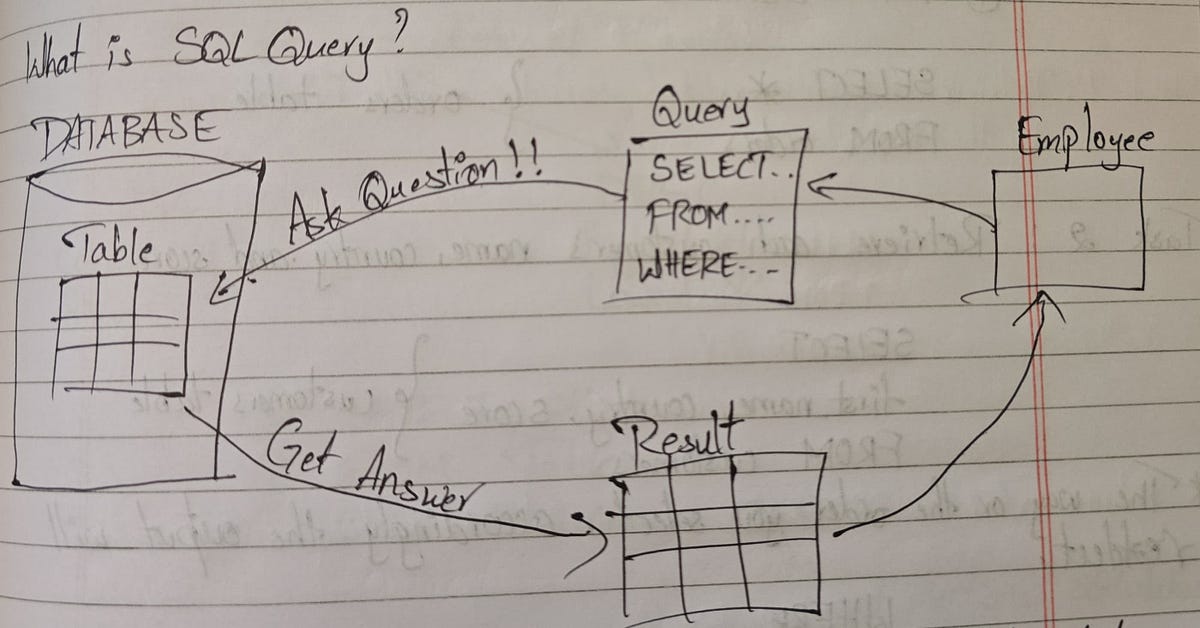 What is SQL Query?
DATABASE
Table
Ask Question!!
Query
SELECT..
FROM....
WHERE...
Employee
Get Answer
Result